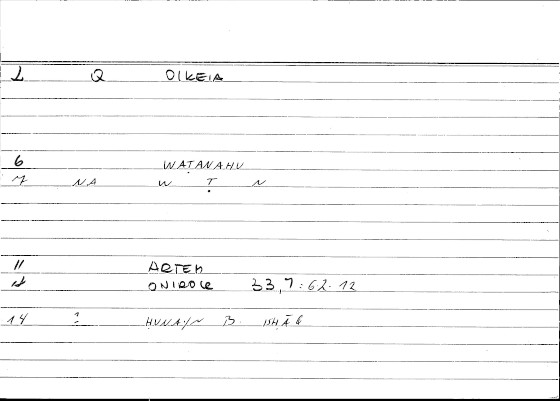 1 Q OIKEIA
6 WAṬANAHU
7 NA W Ṭ N
11 ARTEM
12 ONIROCR 33,7:62.12
14 ḤUNAYN B. ISḤĀQ